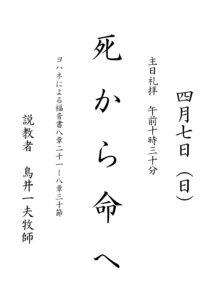 四月七日（日）
主日礼拝　午前十時三十分
死から命へ
ヨハネによる福音書八章二十一－八章三十節
説教者　鳥井一夫牧師